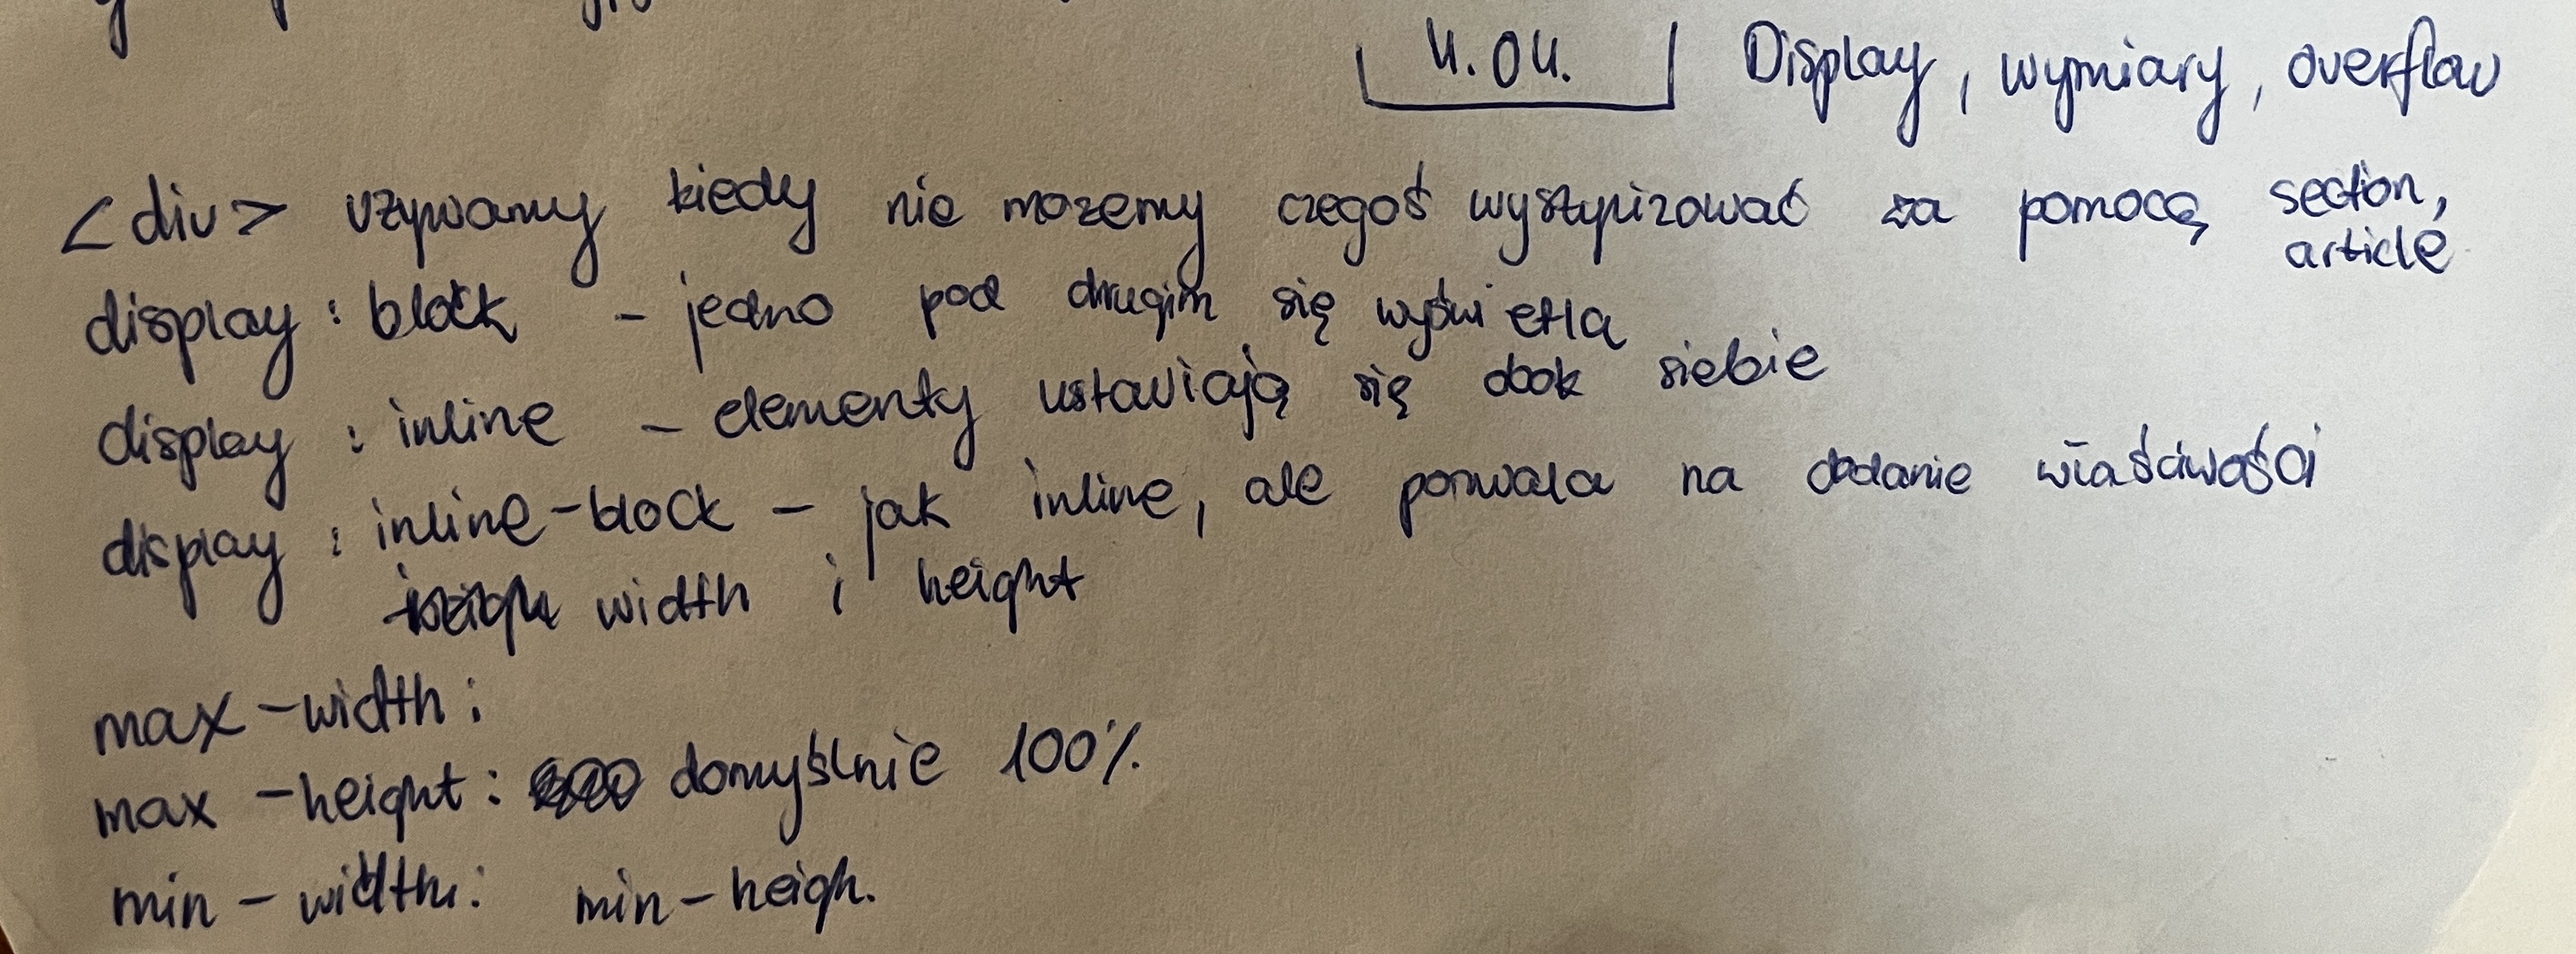 4.04. Display, wymiary, overflow
<div> używamy kiedy nie możemy czegoś wystypizować za pomocą section,
article
display: block - jedno pod drugim się wyświetla
display: inline - elementy ustawiają się obok siebie
display: inline-block - jak inline, ale pozwala na dodanie właściwości
width i height
max-width:
max-height: domyślnie 100%
min-width: min-heigh.